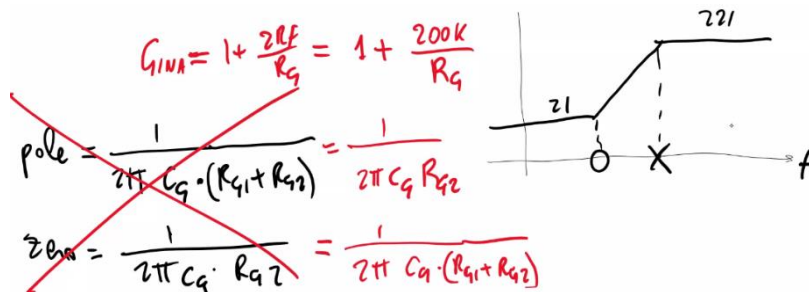 G_INA = 1 + 2RF/RG = 1 + 200K/RG
pole = 1/(2π CG·(RG1+RG2)) = 1/(2π CG RG2)
zero = 1/(2π CG· RG2) = 1/(2π CG·(RG1+RG2))
221
21
O X f